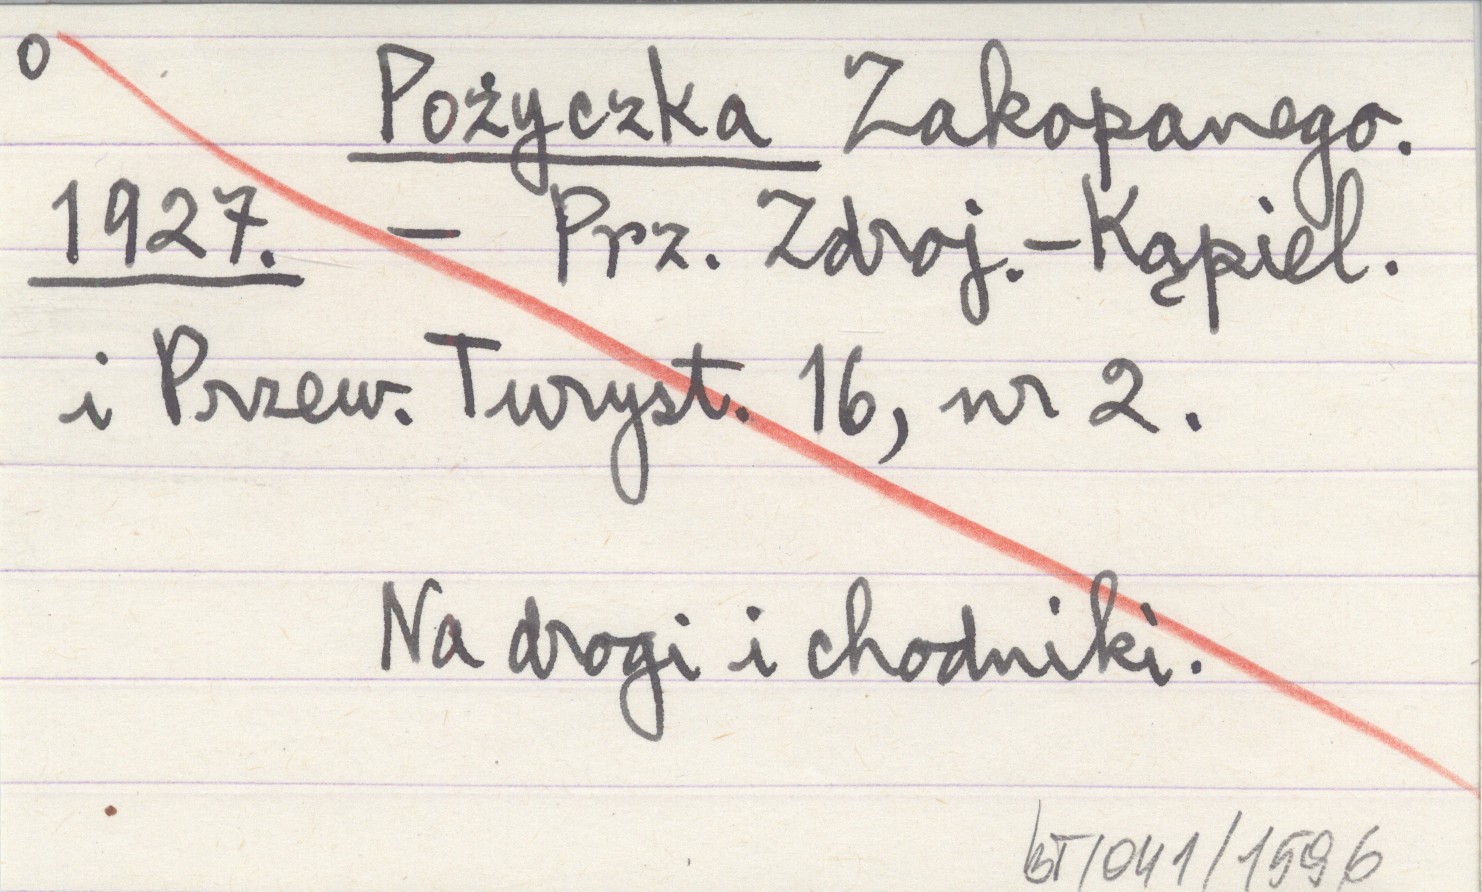 o Pożyczka Zakopanego.
1927. – Prz. Zdroj.-Kąpiel.
i Przew. Turyst. 16, nr 2.
Na drogi i chodniki.
bT/041/1596